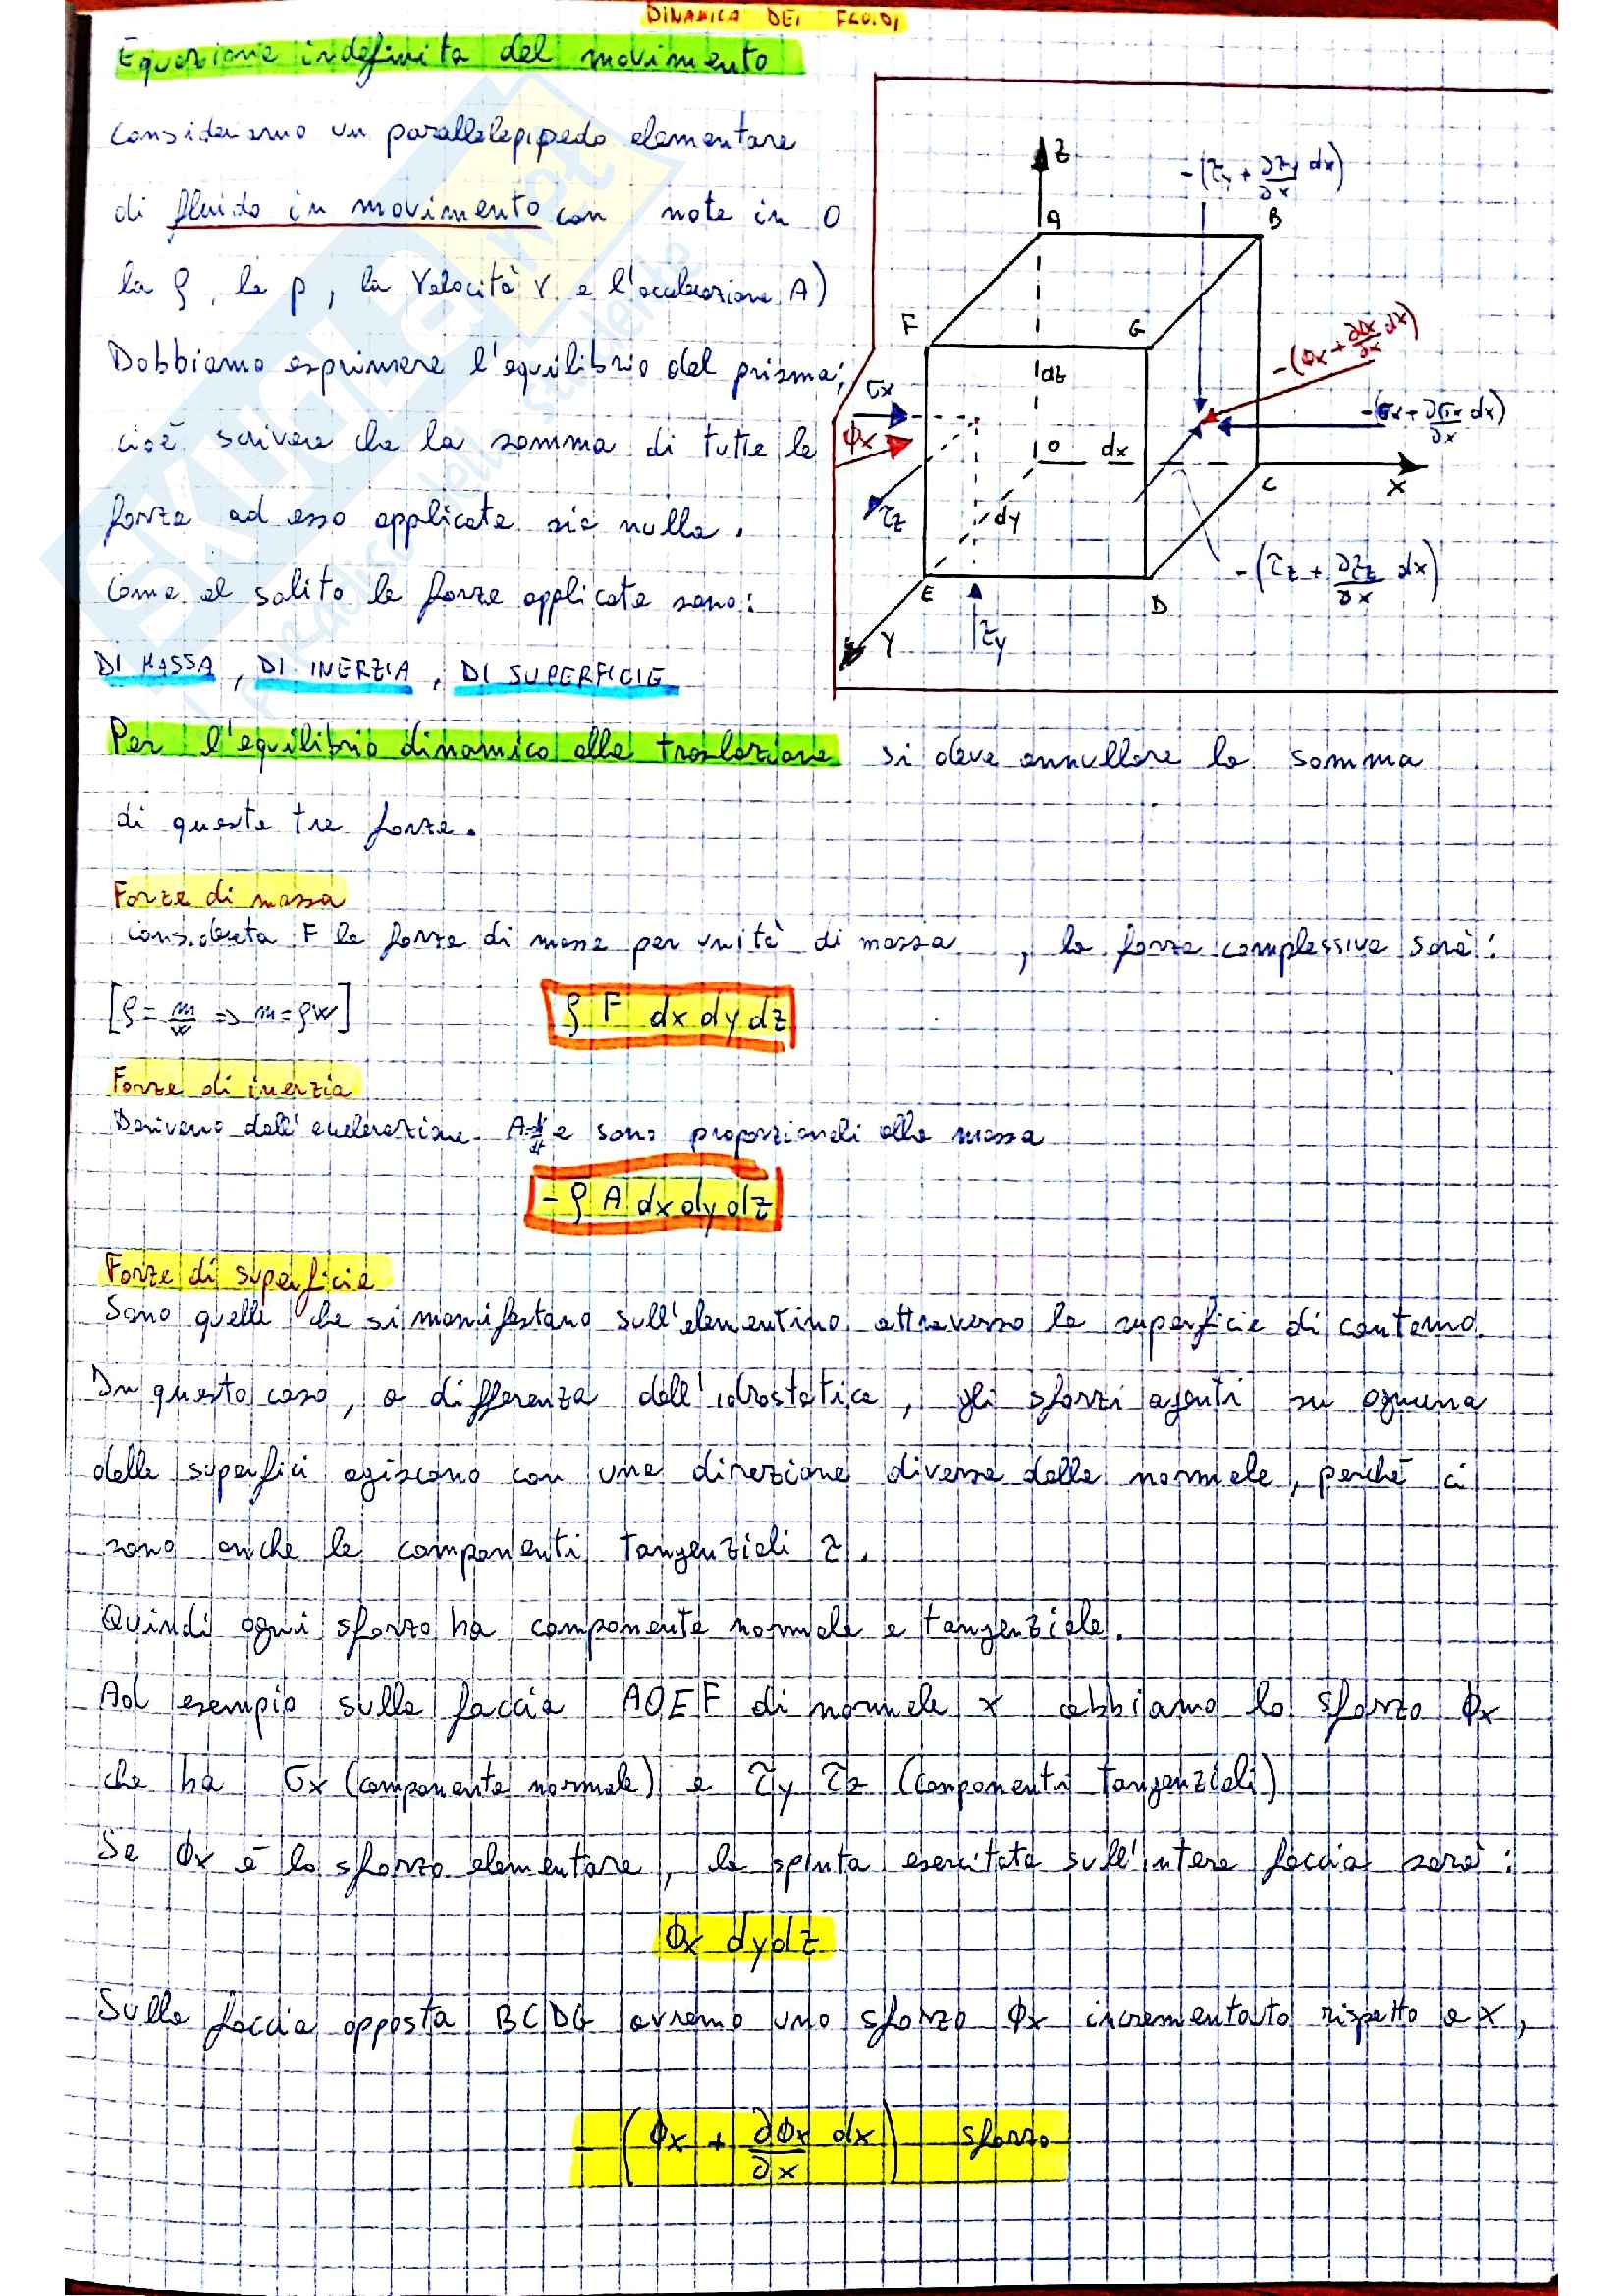 DINAMICA DEI FLUIDI
Equazione indefinita del movimento
Consideriamo un parallelepipedo elementare
di fluido in movimento con note in O
la ρ, la p, la velocità V e l'accelerazione A)
Dobbiamo esprimere l'equilibrio del prisma;
cioè scrivere che la somma di tutte le
forze ad esso applicate sia nulla.
Come al solito le forze applicate sono:
DI MASSA, DI INERZIA, DI SUPERFICIE
z
-(τy + ∂τy/∂x dx)
A
B
F
G
-(Φx + ∂Φx/∂x dx)
dz
σx
-(σx + ∂σx/∂x dx)
Φx
O dx
C
x
τz
dy
-(τz + ∂τz/∂x dx)
E
D
y
τy
Per l'equilibrio dinamico alla traslazione si deve annullare la somma
di queste tre forze.
Forze di massa
Considerata F la forza di massa per unità di massa, la forza complessiva sarà:
[ρ = m/W => m = ρW]
ρ F dx dy dz
Forze di inerzia
Derivano dall'accelerazione A e sono proporzionali alla massa
- ρ A dx dy dz
Forze di superficie
Sono quelle che si manifestano sull'elementino attraverso la superficie di contorno.
In questo caso, a differenza dell'idrostatica, gli sforzi agenti su ognuna
delle superfici agiscono con una direzione diversa dalla normale, perché ci
sono anche le componenti tangenziali τ.
Quindi ogni sforzo ha componente normale e tangenziale.
Ad esempio sulla faccia AOEF di normale x abbiamo lo sforzo Φx
che ha σx (componente normale) e τy τz (componenti tangenziali)
Se Φx è lo sforzo elementare, la spinta esercitata sull'intera faccia sarà:
Φx dydz
Sulla faccia opposta BCDG avremo uno sforzo Φx incrementato rispetto a x,
- (Φx + ∂Φx/∂x dx) sforzo